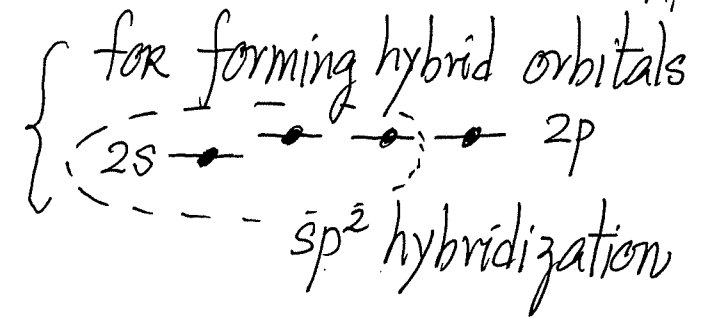 for forming hybrid orbitals
2s 2p
sp² hybridization